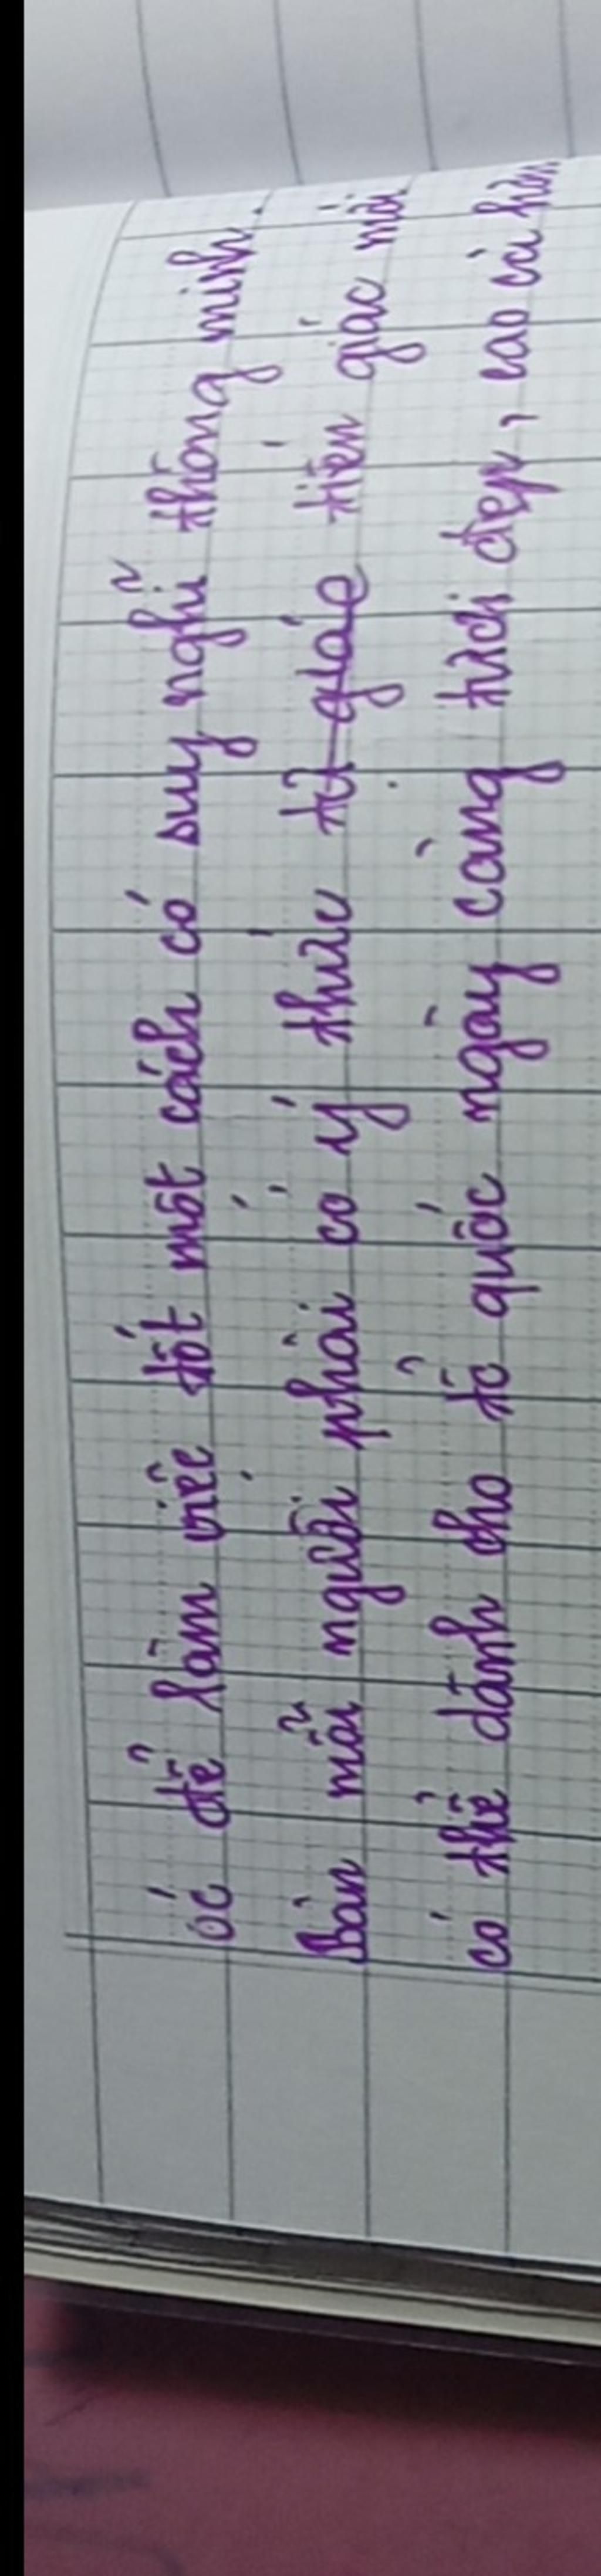 óc để làm việc tốt một cách có suy nghĩ thông minh.
Bản mỗi người phải có ý thức tử giác tiến giác mới
có thể dành cho tổ quốc ngày càng tươi đẹp, cao cả hơn